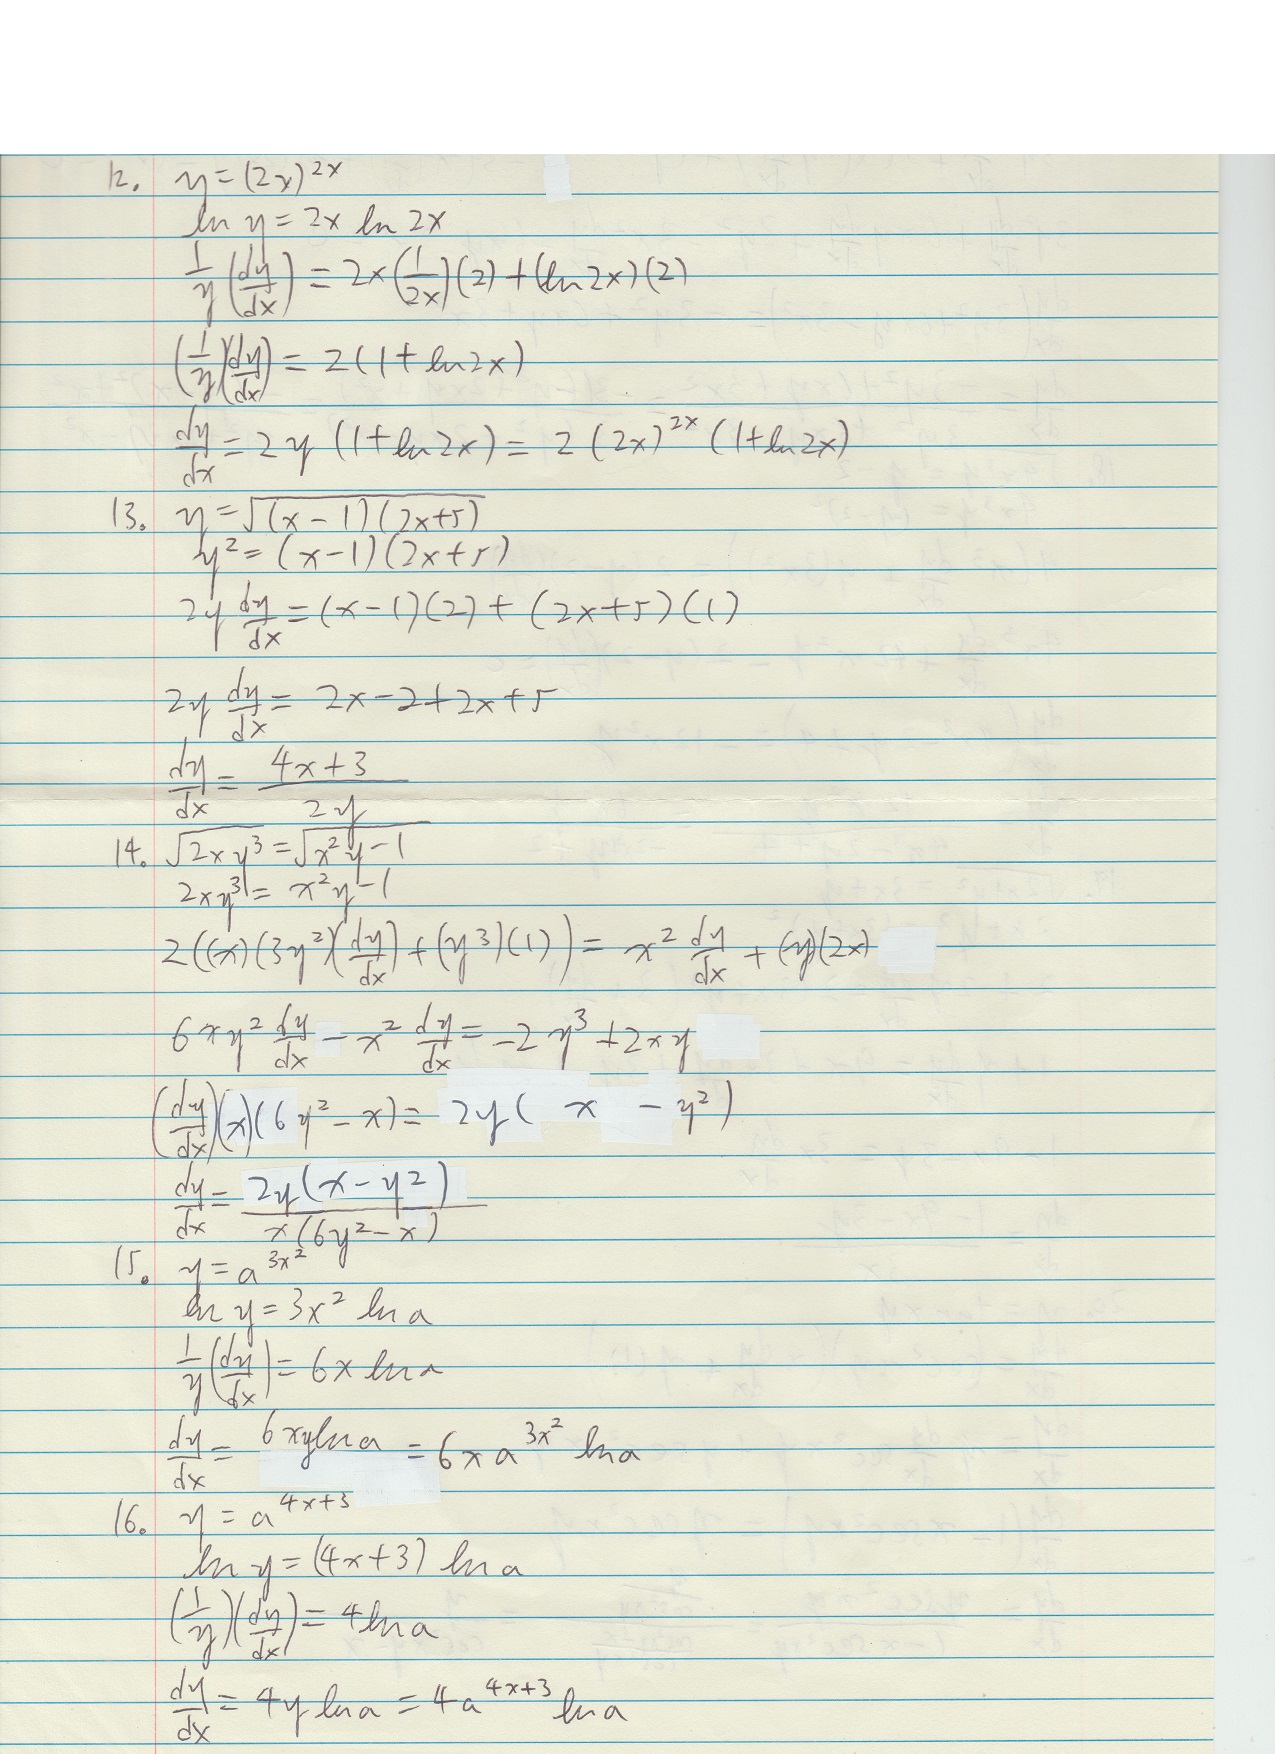 12. y = (2x)^2x
ln y = 2x ln 2x
1/y (dy/dx) = 2x(1/2x)(2) + (ln 2x)(2)
(1/y)(dy/dx) = 2(1 + ln 2x)
dy/dx = 2y (1 + ln 2x) = 2 (2x)^2x (1 + ln 2x)
13. y = √(x - 1)(2x+5)
y² = (x-1)(2x+5)
2y dy/dx = (x-1)(2) + (2x+5)(1)
2y dy/dx = 2x-2+2x+5
dy/dx = (4x+3)/2y
14. √2xy³ = √x²y-1
2xy³ = x²y-1
2((x)(3y²)(dy/dx) + (y³)(1)) = x² dy/dx + (y)(2x)
6xy² dy/dx - x² dy/dx = -2y³ + 2xy
(dy/dx)(x)(6y² - x) = 2y( x - y²)
dy/dx = 2y(x-y²)/x(6y²-x)
15. y = a^3x²
ln y = 3x² ln a
1/y (dy/dx) = 6x ln a
dy/dx = 6xy ln a = 6x a^3x² ln a
16. y = a^4x+3
ln y = (4x+3) ln a
(1/y)(dy/dx) = 4 ln a
dy/dx = 4y ln a = 4a^4x+3 ln a